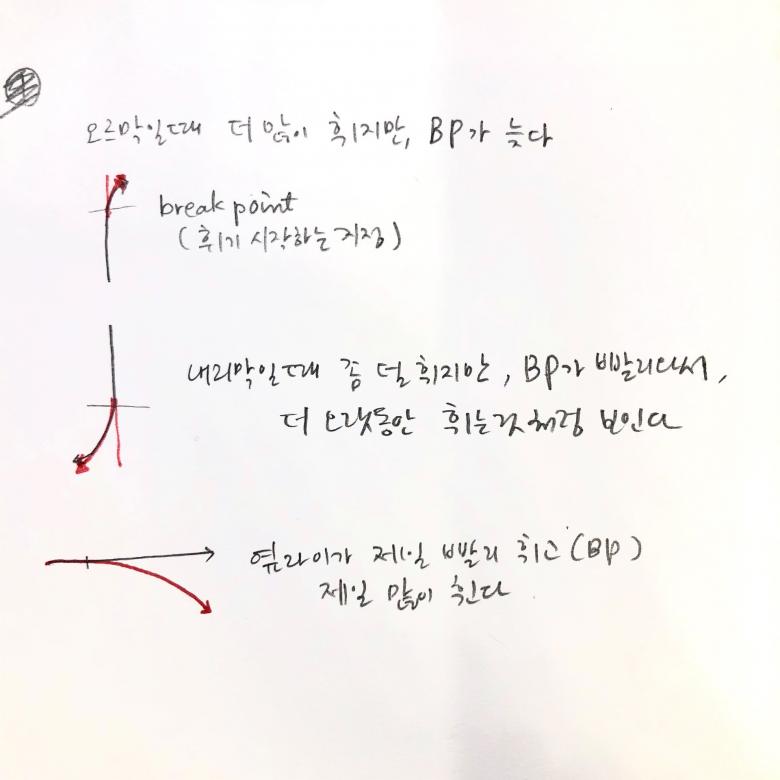 오르막일때 더 많이 휘지만, BP가 늦다
break point
(휘기 시작하는 지점)
내리막일때 좀 덜 휘지만, BP가 빨리와서,
더 오랫동안 휘는것처럼 보인다
옆라이가 제일 빨리 휘고(BP)
제일 많이 휜다